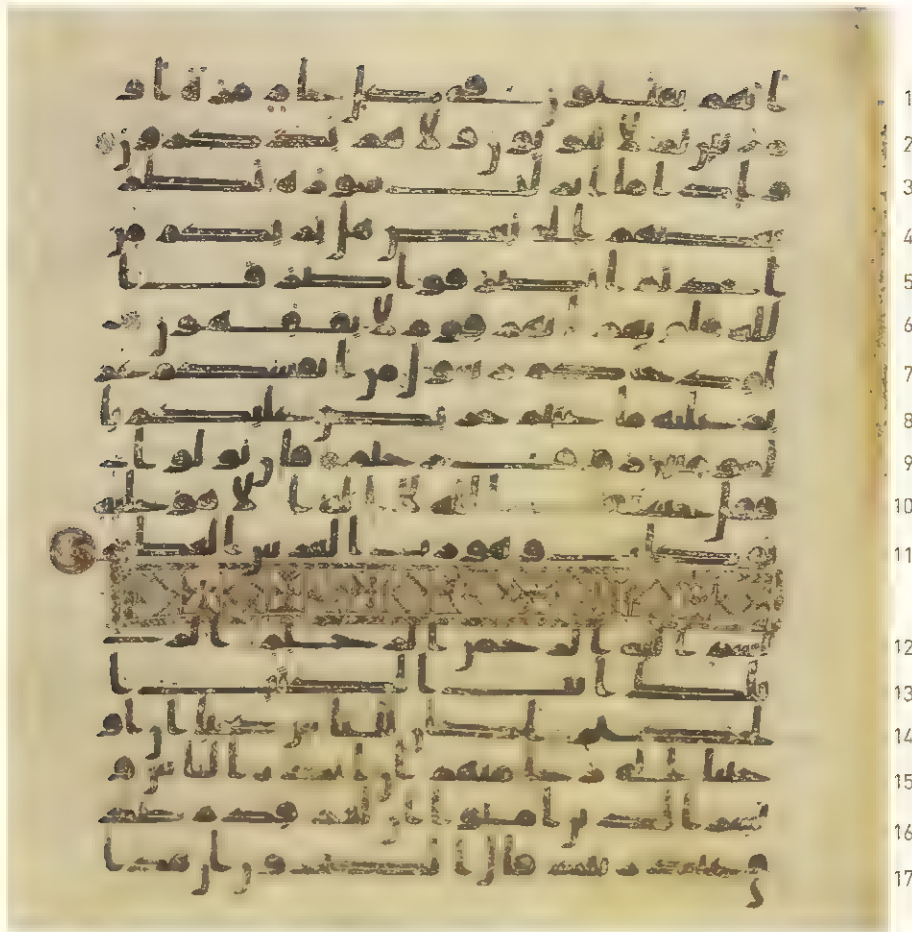 1 انهم يفتنون في كل عام مرة او
2 مرتين ثم لا يتوبون ولا هم يذكرون
3 واذا ما انزلت سورة نظر
4 بعضهم الى بعض هل يريكم من
5 احد ثم انصرفوا صرف ا
6 لله قلوبهم بانهم قوم لا يفقهون
7 لقد جاكم رسول من انفسكم عز
8 يز عليه ما عنتم حريص عليكم با
9 لمومنين روف رحيم فان تولوا
10 فقل حسبي الله لا اله الا هو عليه
11 توكلت وهو رب العرش العظيم
12 بسم الله الرحمن الرحيم الر
13 تلك ايت الكتب ا
14 لحكيم اكان للناس عجبا ان او
15 حينا الى رجل منهم ان انذر الناس و
16 بشر الذين امنوا ان لهم قدم صد
17 ق عند ربهم قال الكفرون ان هذا